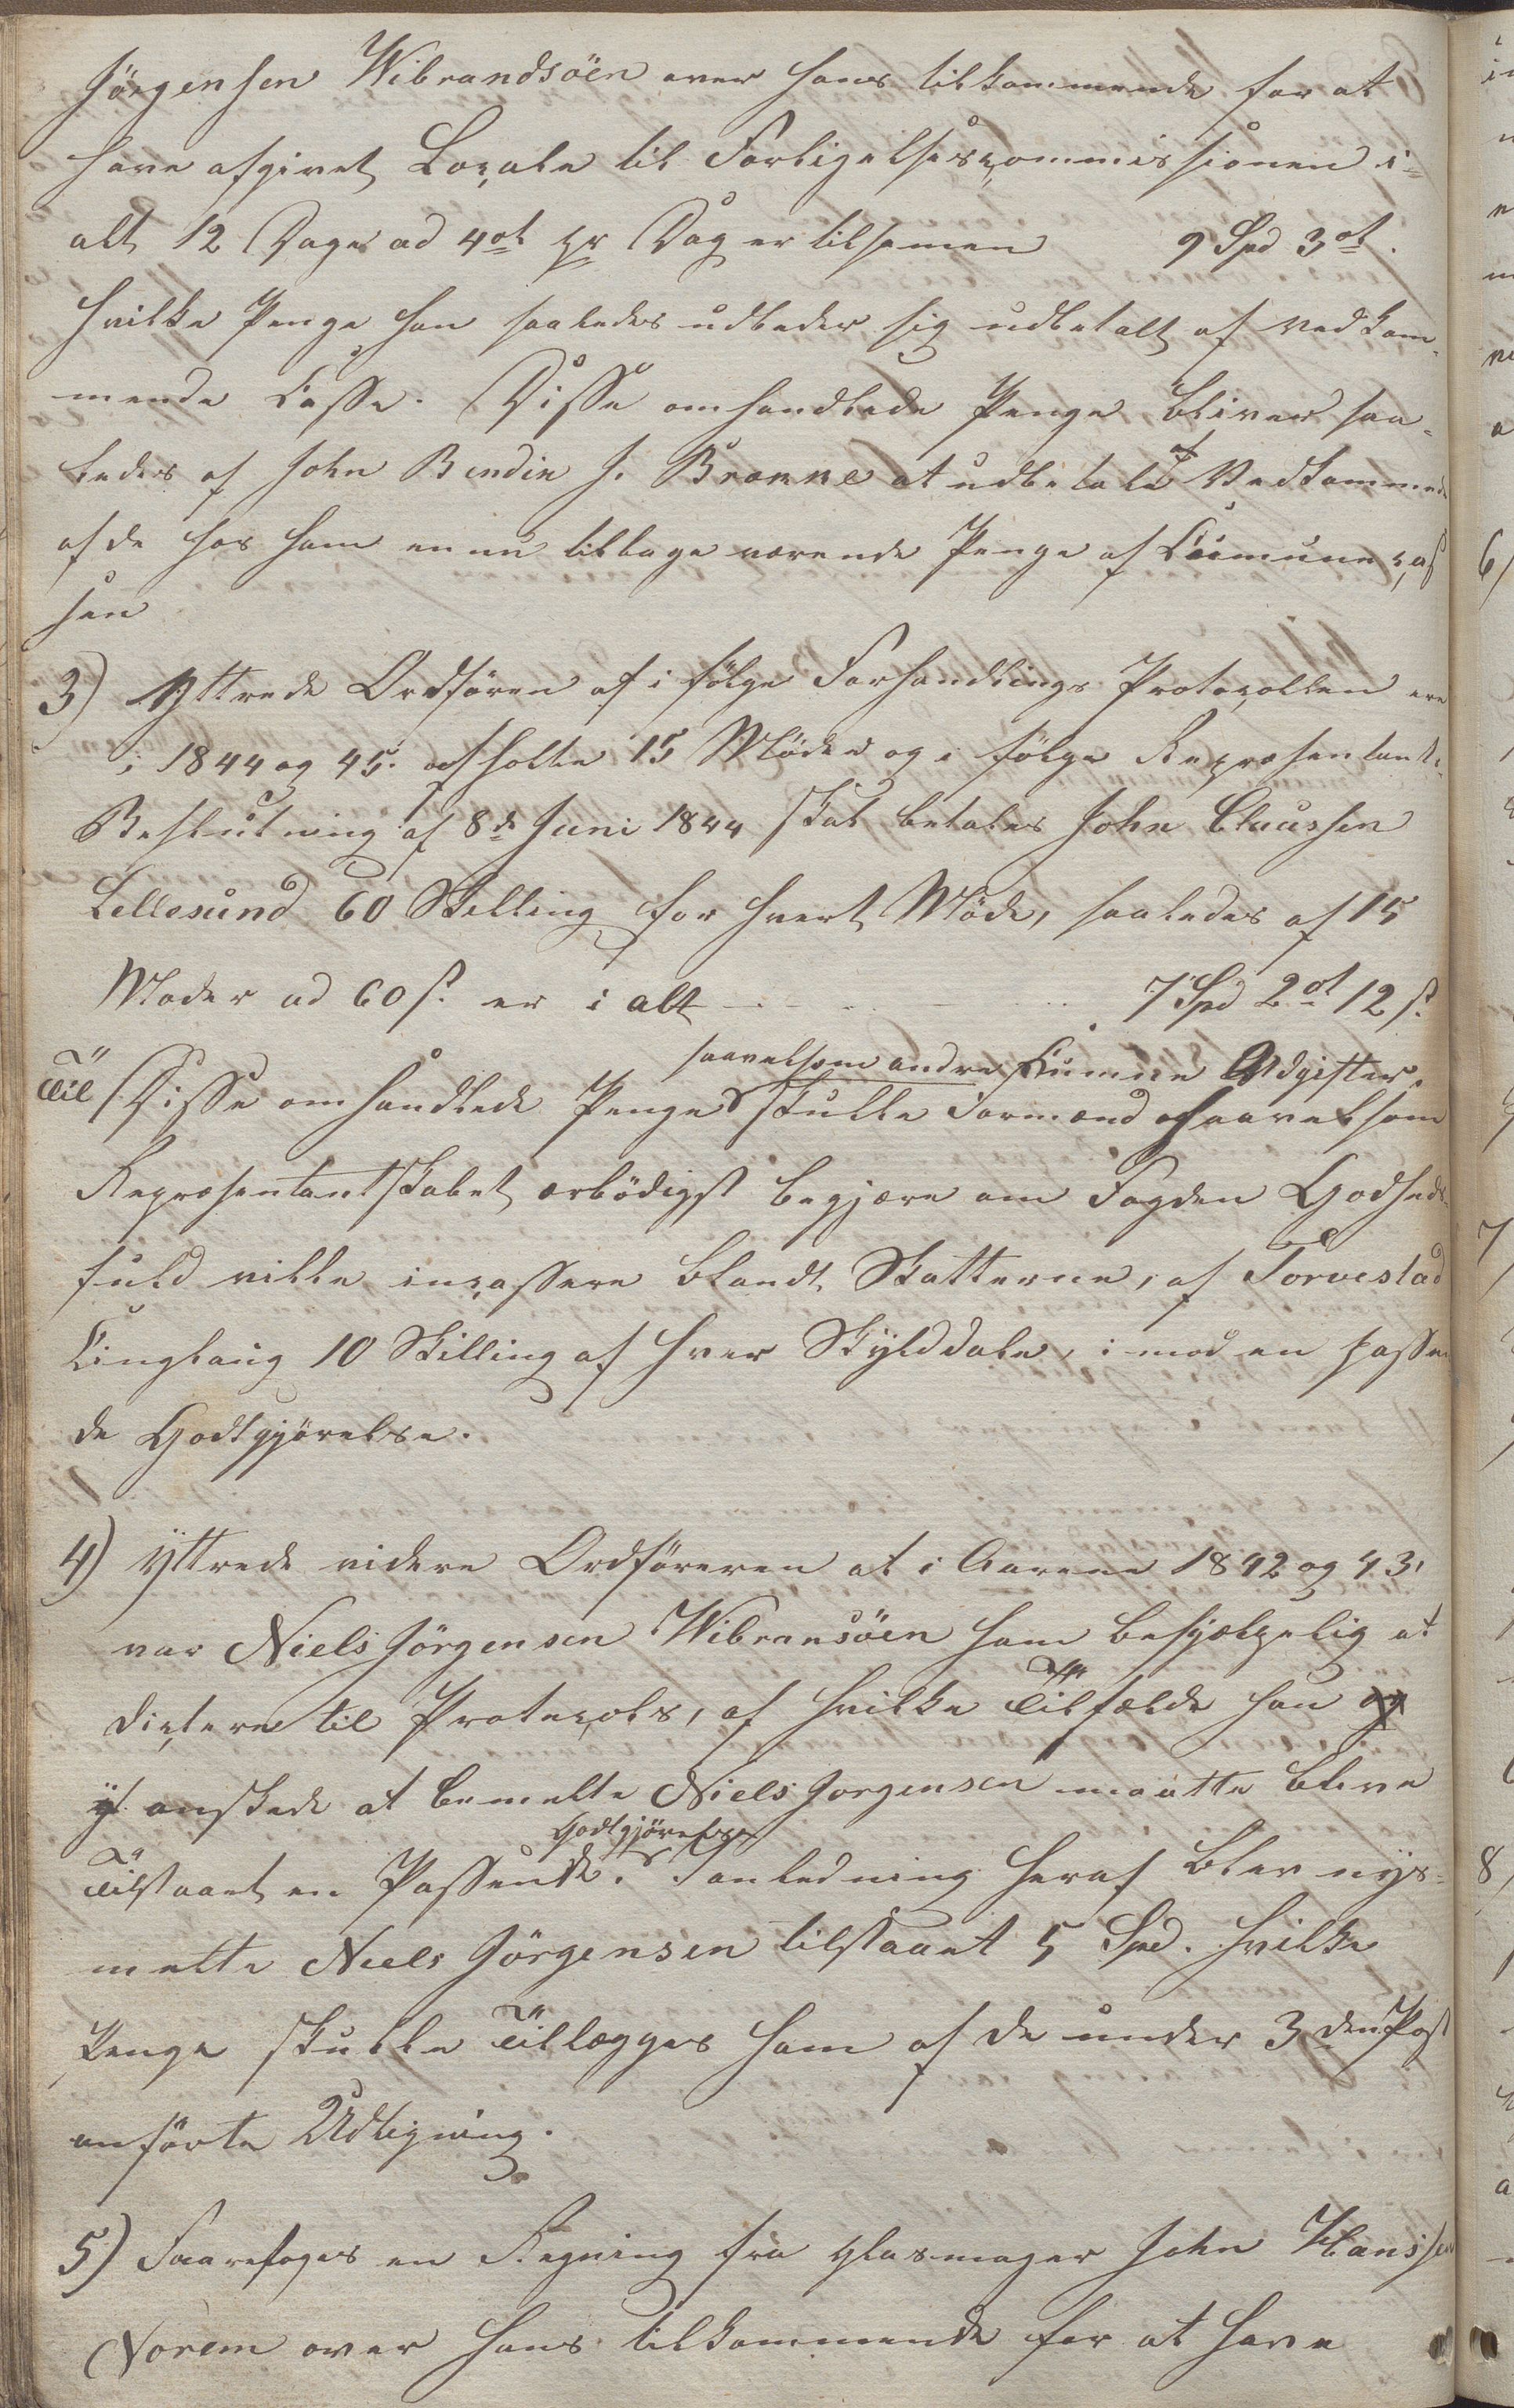 Jörgensen Wibrandsöen over hans tilkommende for at
have afgivet Locale til Forligelsescommissionen i-
alt 12 Dage ad 4 ot pr Dag er tilsamen 9 Spd 3 ot.
hvilke Penge han saaledes udbeder sig udbetalt af vedkom-
mende Casse. Disse omhandlede Penge bliver saa-
ledes af John Bendix J. Brønne at udbetale Vedkommende
af de hos ham ennu tilbage værende Penge af Comunecas
sen
3) Yttrede Ordføren at i følge Forhandlings Protocollen ere
i 1844 og 45. afholte 15 Möder og i følge Repræsentant-
Beslutning af 8de Juni 1844 skal betales John Claussen
Lillesund 60 Skilling for hvert Möde, saaledes af 15
Moder ad 60 s. er i alt - - - 7 Spd 2 ot 12 s.
saavelsom andre Kumne Udgifter
Til Disse omhandlede Penge skulle Formænd saavelsom
Repræsentantskabet ærbödigst begjære om Fogden Godheds-
fuld ville incassere blandt Skatterne, af Torvestad
Tinglaug 10 Skilling af hver Skylddaler, i mod en passen
de Godtgjörelse.
4) Yttrede videre Ordföreren at i Aarene 1842 og 43,
var Niels Jörgensen Wibransöen ham behjælpelig at
dictere til Protocols, af hvilke Tilfælde han
önskede at bemelte Niels Jorgensen maatte blive
Godtgjörelse
Tilstaaet en Passende. I anledning heraf blev nys-
melte Niels Jörgensen tilstaaet 5 Spd. hvilke
Penge skulle Tillægges ham af de under 3den Post
anförte Udligning.
5) Faarefoges en Regning fra Glasmager John Hanssen
Norem over hans tilkommende for at have